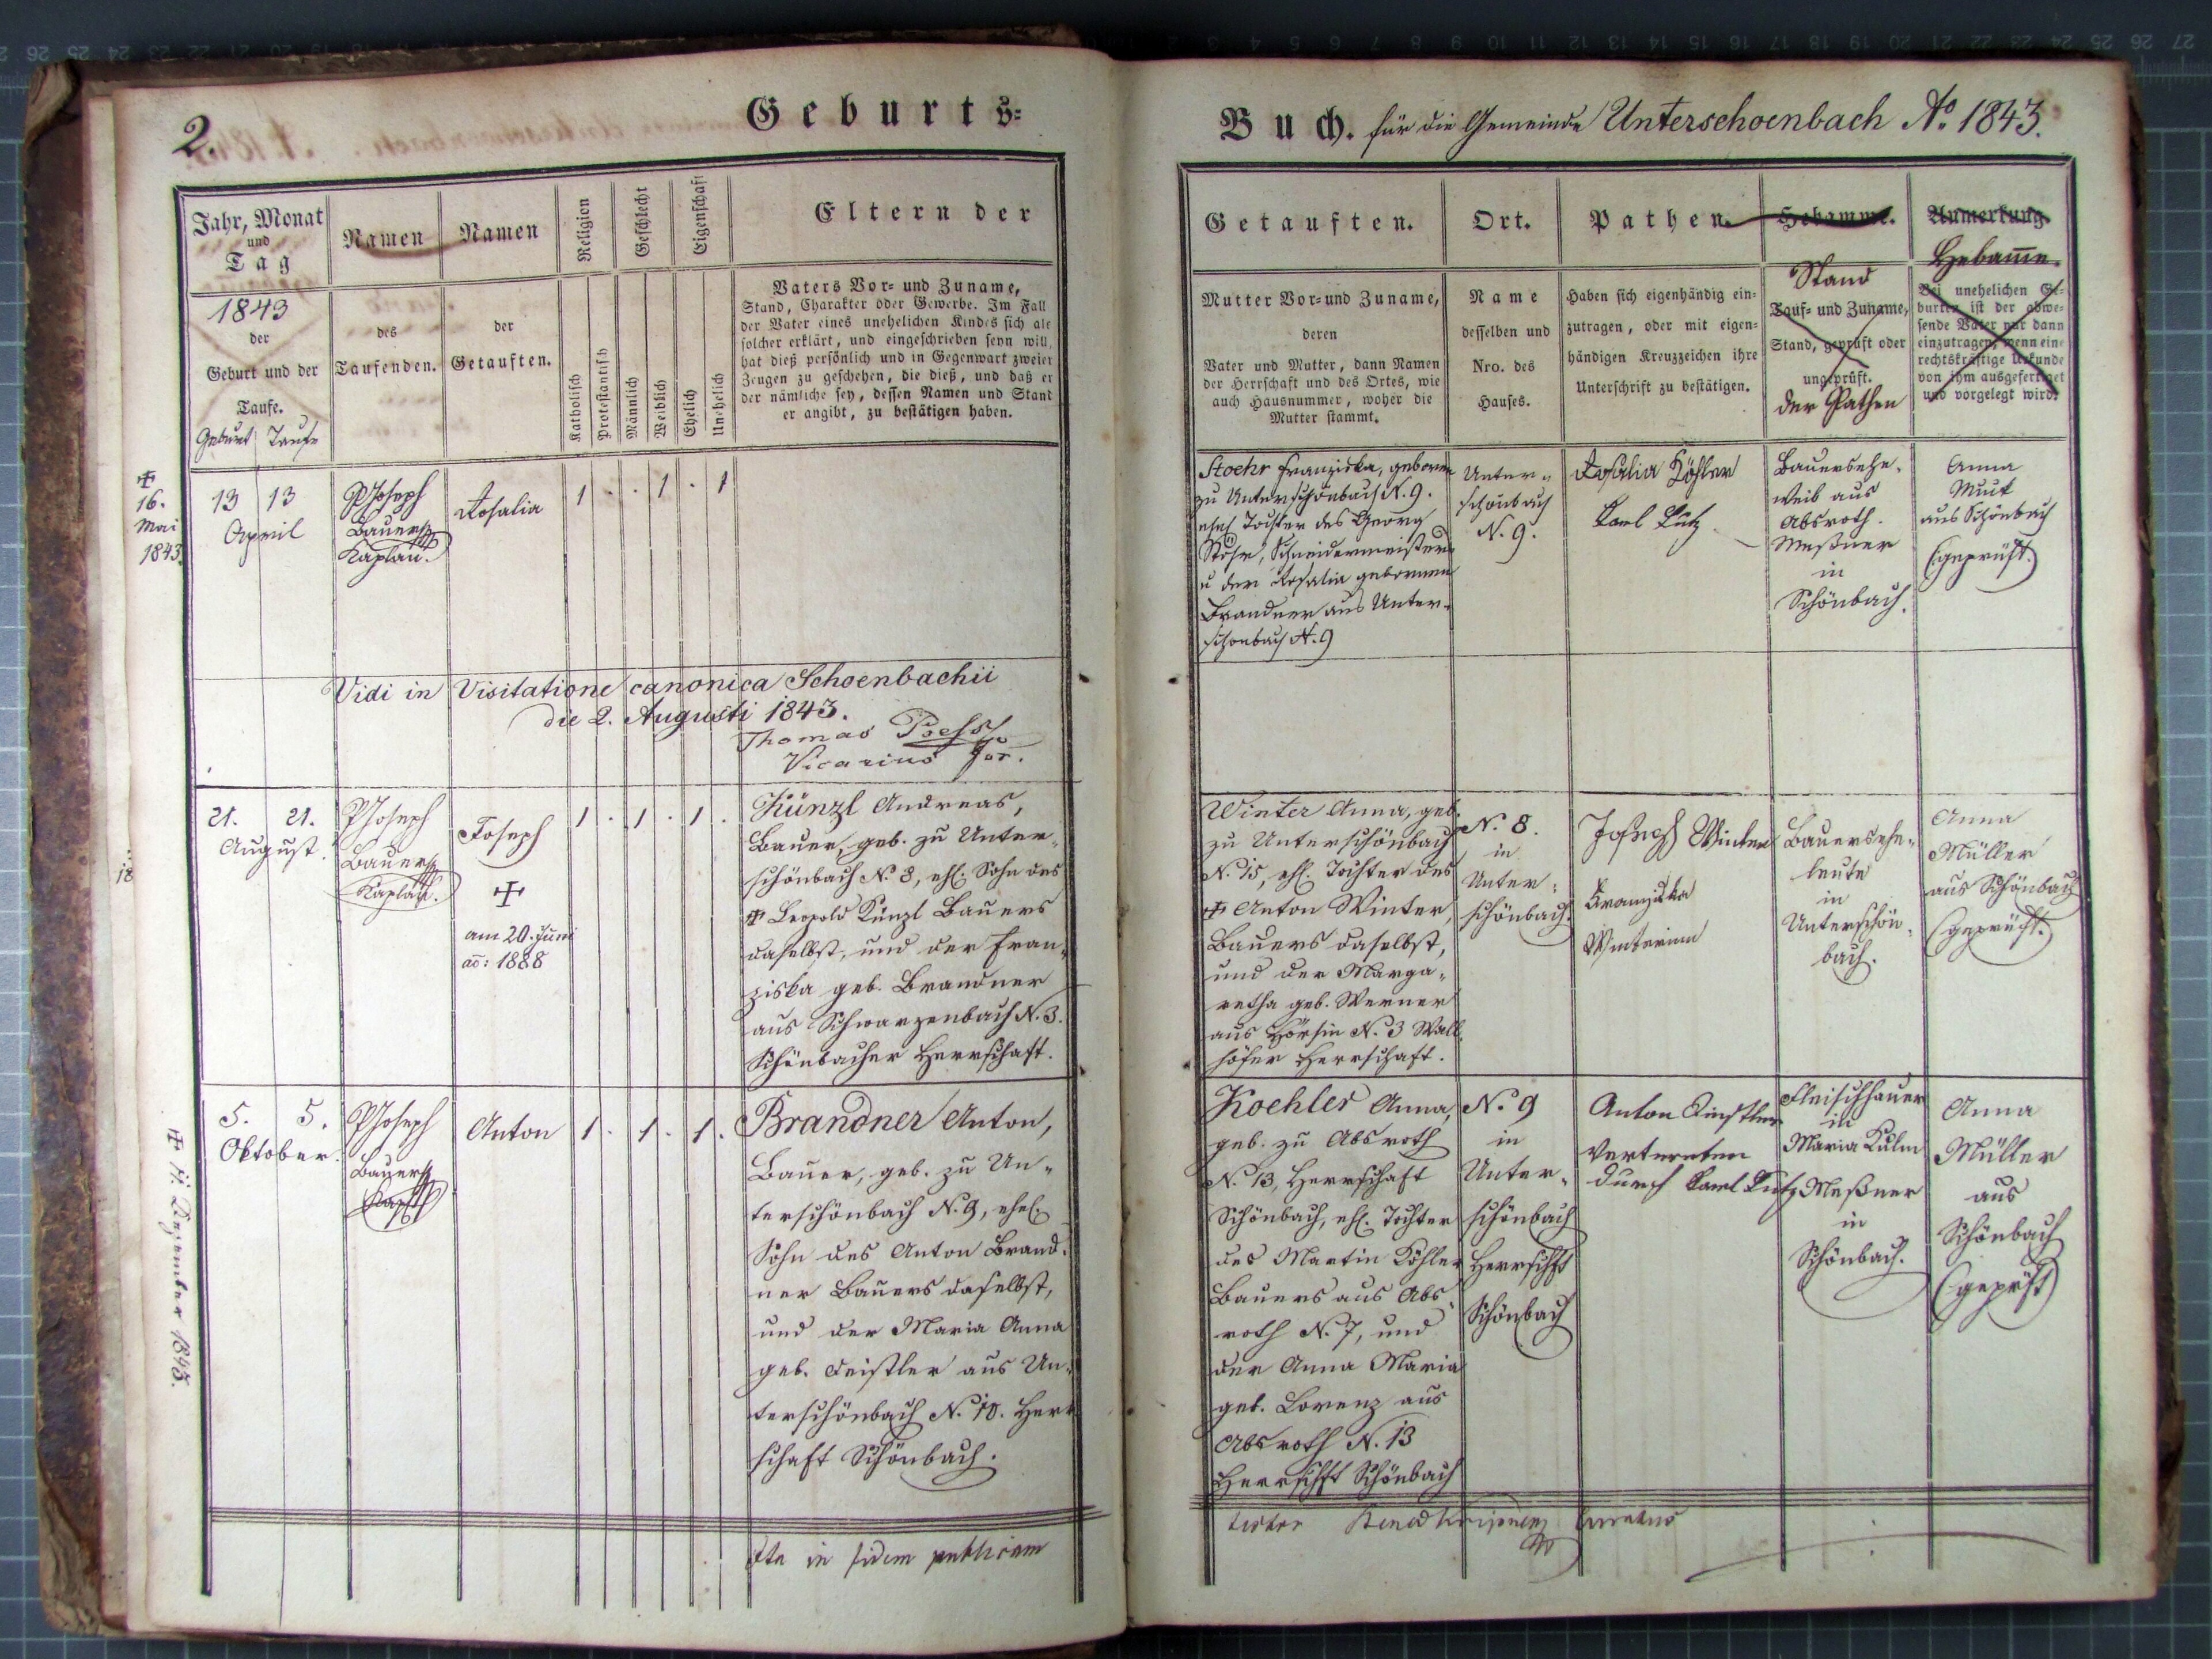 2.
Geburts=
Jahr, Monat
und
Tag
1843
der
Geburt und der
Taufe.
Geburt Taufe
Namen
des
Taufenden.
Namen
der
Getauften.
Religion
Katholisch
Protestantisch
Geschlecht
Männlich
Weiblich
Eigenschaft
Ehelich
Unehelich
Eltern der
Vaters Vor= und Zuname,
Stand, Charakter oder Gewerbe. Im Fall
der Vater eines unehelichen Kindes sich als
solcher erklärt, und eingeschrieben seyn will,
hat dieß persönlich und in Gegenwart zweier
Zeugen zu geschehen, die dieß, und daß er
der nämliche sey, dessen Namen und Stand
er angibt, zu bestätigen haben.
✠
16.
Mai
1843.
13 13
April
P Joseph
Bauer
Kaplan.
Rosalia
1 . . 1 . 1
Vidi in Visitatione canonica Schoenbachii
die 2. Augusti 1843.
Thomas
Vicarius For.
18
21. 21.
August.
P Joseph
Bauer
Kaplan.
Joseph
✠
am 20. Juni
ao: 1888
1 . 1 . 1 .
Künzl Andreas,
Bauer, geb. zu Unter=
schönbach N. 8, ehl. Sohn des
✠ Leopold Künzl Bauers
daselbst, und der Fran=
ziska geb. Brandner
aus Schwarzenbach N. 3.
Schönbacher Herrschaft.
✠ Dezember 1843.
5. 5.
Oktober.
P Joseph
Bauer
Kapl
Anton
1 . 1 . 1 .
Brandner Anton,
Bauer, geb. zu Un=
terschönbach N. 9, ehel.
Sohn des Anton Brand=
ner Bauers daselbst,
und der Maria Anna
geb. Feistler aus Un=
terschönbach N. 10. Herr
schaft Schönbach.
Ita in fidem publicam
Buch. für die Gemeinde Unterschoenbach Ao. 1843.
Getauften.
Mutter Vor= und Zuname,
deren
Vater und Mutter, dann Namen
der Herrschaft und des Ortes, wie
auch Hausnummer, woher die
Mutter stammt.
Ort.
Name
desselben und
Nro. des
Hauses.
Pathen.
Haben sich eigenhändig ein=
zutragen, oder mit eigen=
händigen Kreuzzeichen ihre
Unterschrift zu bestätigen.
Hebamme.
Stand
Tauf= und Zuname,
Stand, geprüft oder
ungeprüft.
der Pathen
Anmerkung.
Hebamme.
Bei unehelichen Ge=
burten ist der abwe=
sende Vater nur dann
einzutragen, wenn eine
rechtskräftige Urkunde
von ihm ausgefertiget
und vorgelegt wird.
Stoehr Franziska, geboren
zu Unterschönbach N. 9.
ehel Tochter des Georg
Stöhr, Schneidermeisters
u der Rosalia gebornen
Brandner aus Unter=
schönbach N. 9
Unter=
schönbach
N. 9.
Rosalia Köhler
Karl Lutz
Bauersehe=
weib aus
Absroth.
Meßner
in
Schönbach.
Anna
aus Schönbach
(geprüft.)
Winter Anna, geb.
zu Unterschönbach
N. 15, ehl. Tochter des
✠ Anton Winter,
Bauers daselbst,
und der Marga=
retha geb. Werner
aus Hörsin N. 3 Wall
höfer Herrschaft.
N. 8.
in
Unter=
schönbach.
Joseph Winter
Franziska
Winterinn
Bauersehe=
leute
in
Unterschön=
bach.
Anna
Müller
aus Schönbach
(geprüft.)
Koehler Anna,
geb. zu Absroth
N. 13, Herrschaft
Schönbach, ehl. Tochter
des Martin Köhler
Bauers aus Abs
roth N. 7, und
der Anna Maria
geb. Lorenz aus
Absroth N. 13
Herrschft Schönbach
N. 9
in
Unter=
schönbach
Herrschft
Schönbach
Anton Feistler
vertreten
durch Karl Lutz
Fleischhauer
in
Maria Kulm
Meßner
in
Schönbach.
Anna
Müller
aus
Schönbach
(geprüft)
testor Curatus